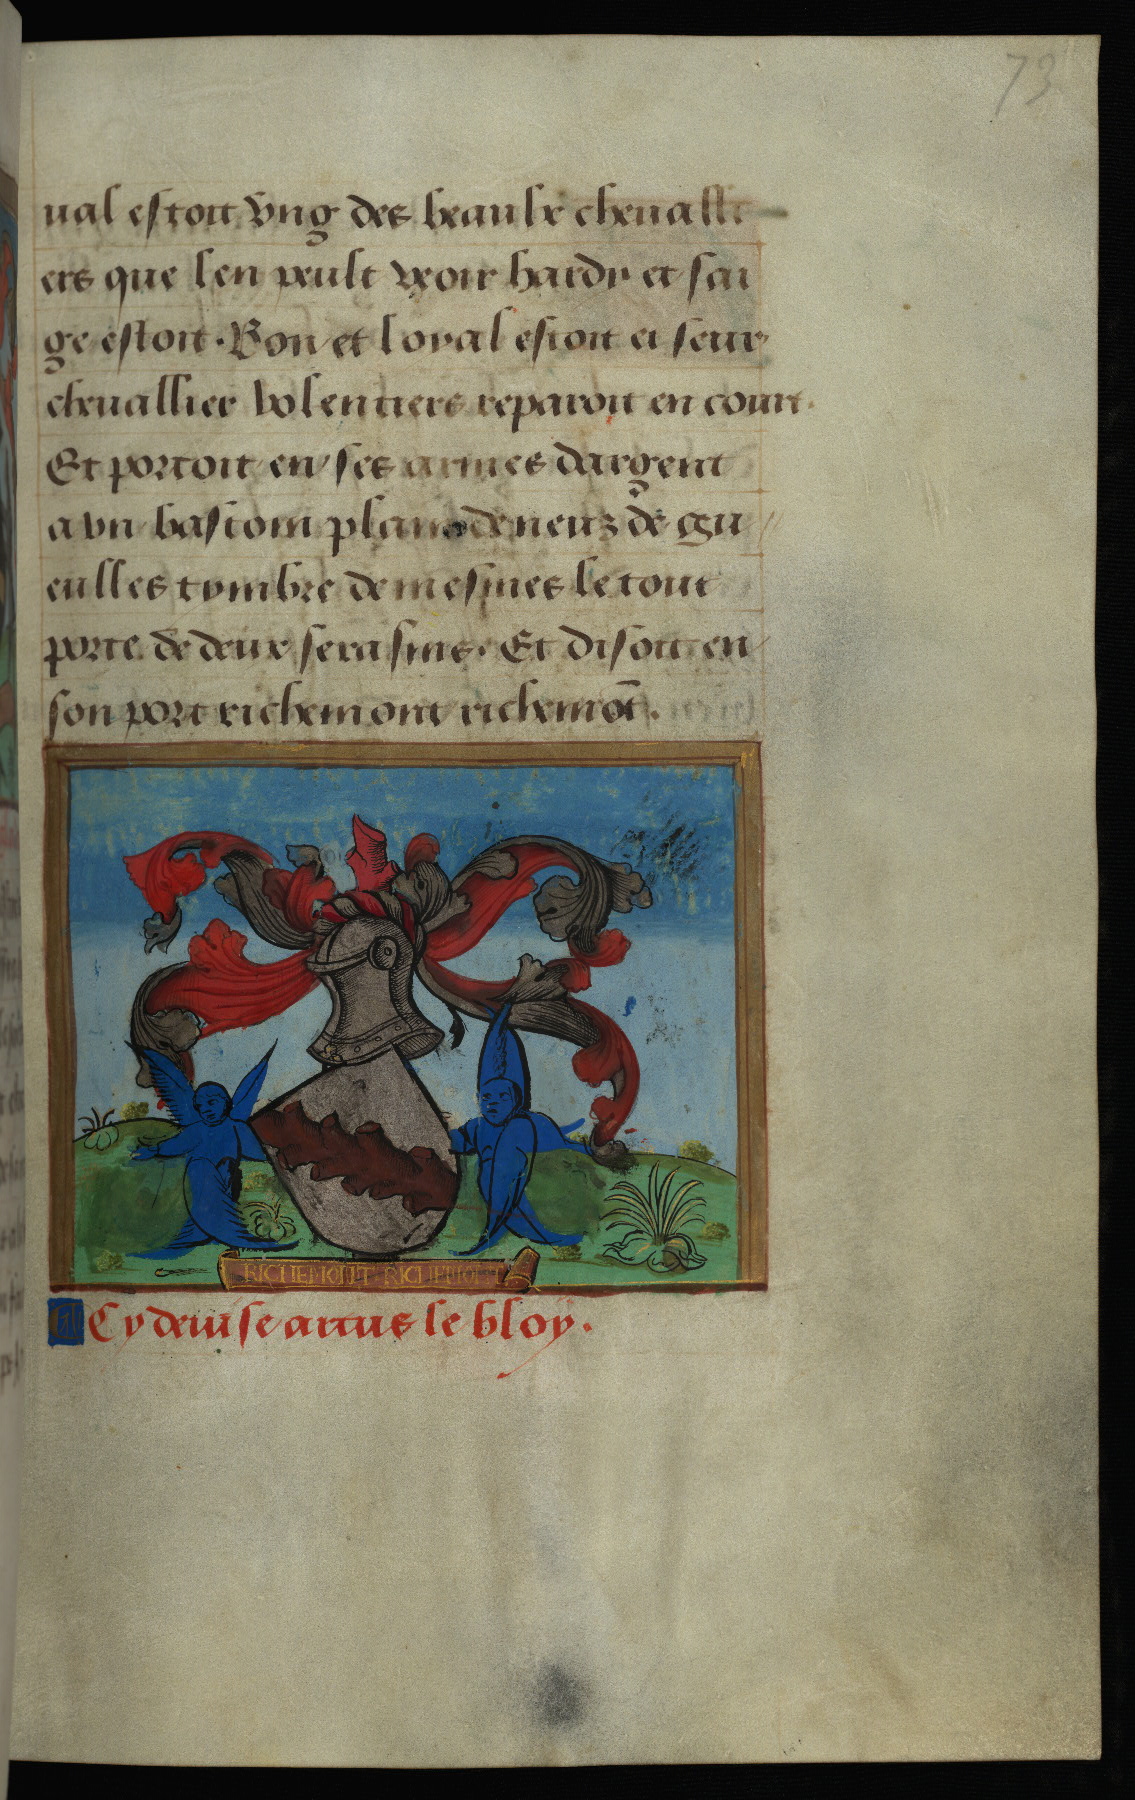 73
ual estoit vng des beaulx cheualli
ers que len peult veoir hardy et sai
ge estoit. Bon et loyal estoit et seur
cheuallier volentiers reparoit en court.
Et portoit en ses armes dargent
a vn bastom plain de neuz de gu
eulles tymbre de mesmes le tout
porte de deux serasins. Et disoit en
son port richemont richemōt.
RICHEMONT RICHEMONT
Cy deuise artus le bloy.